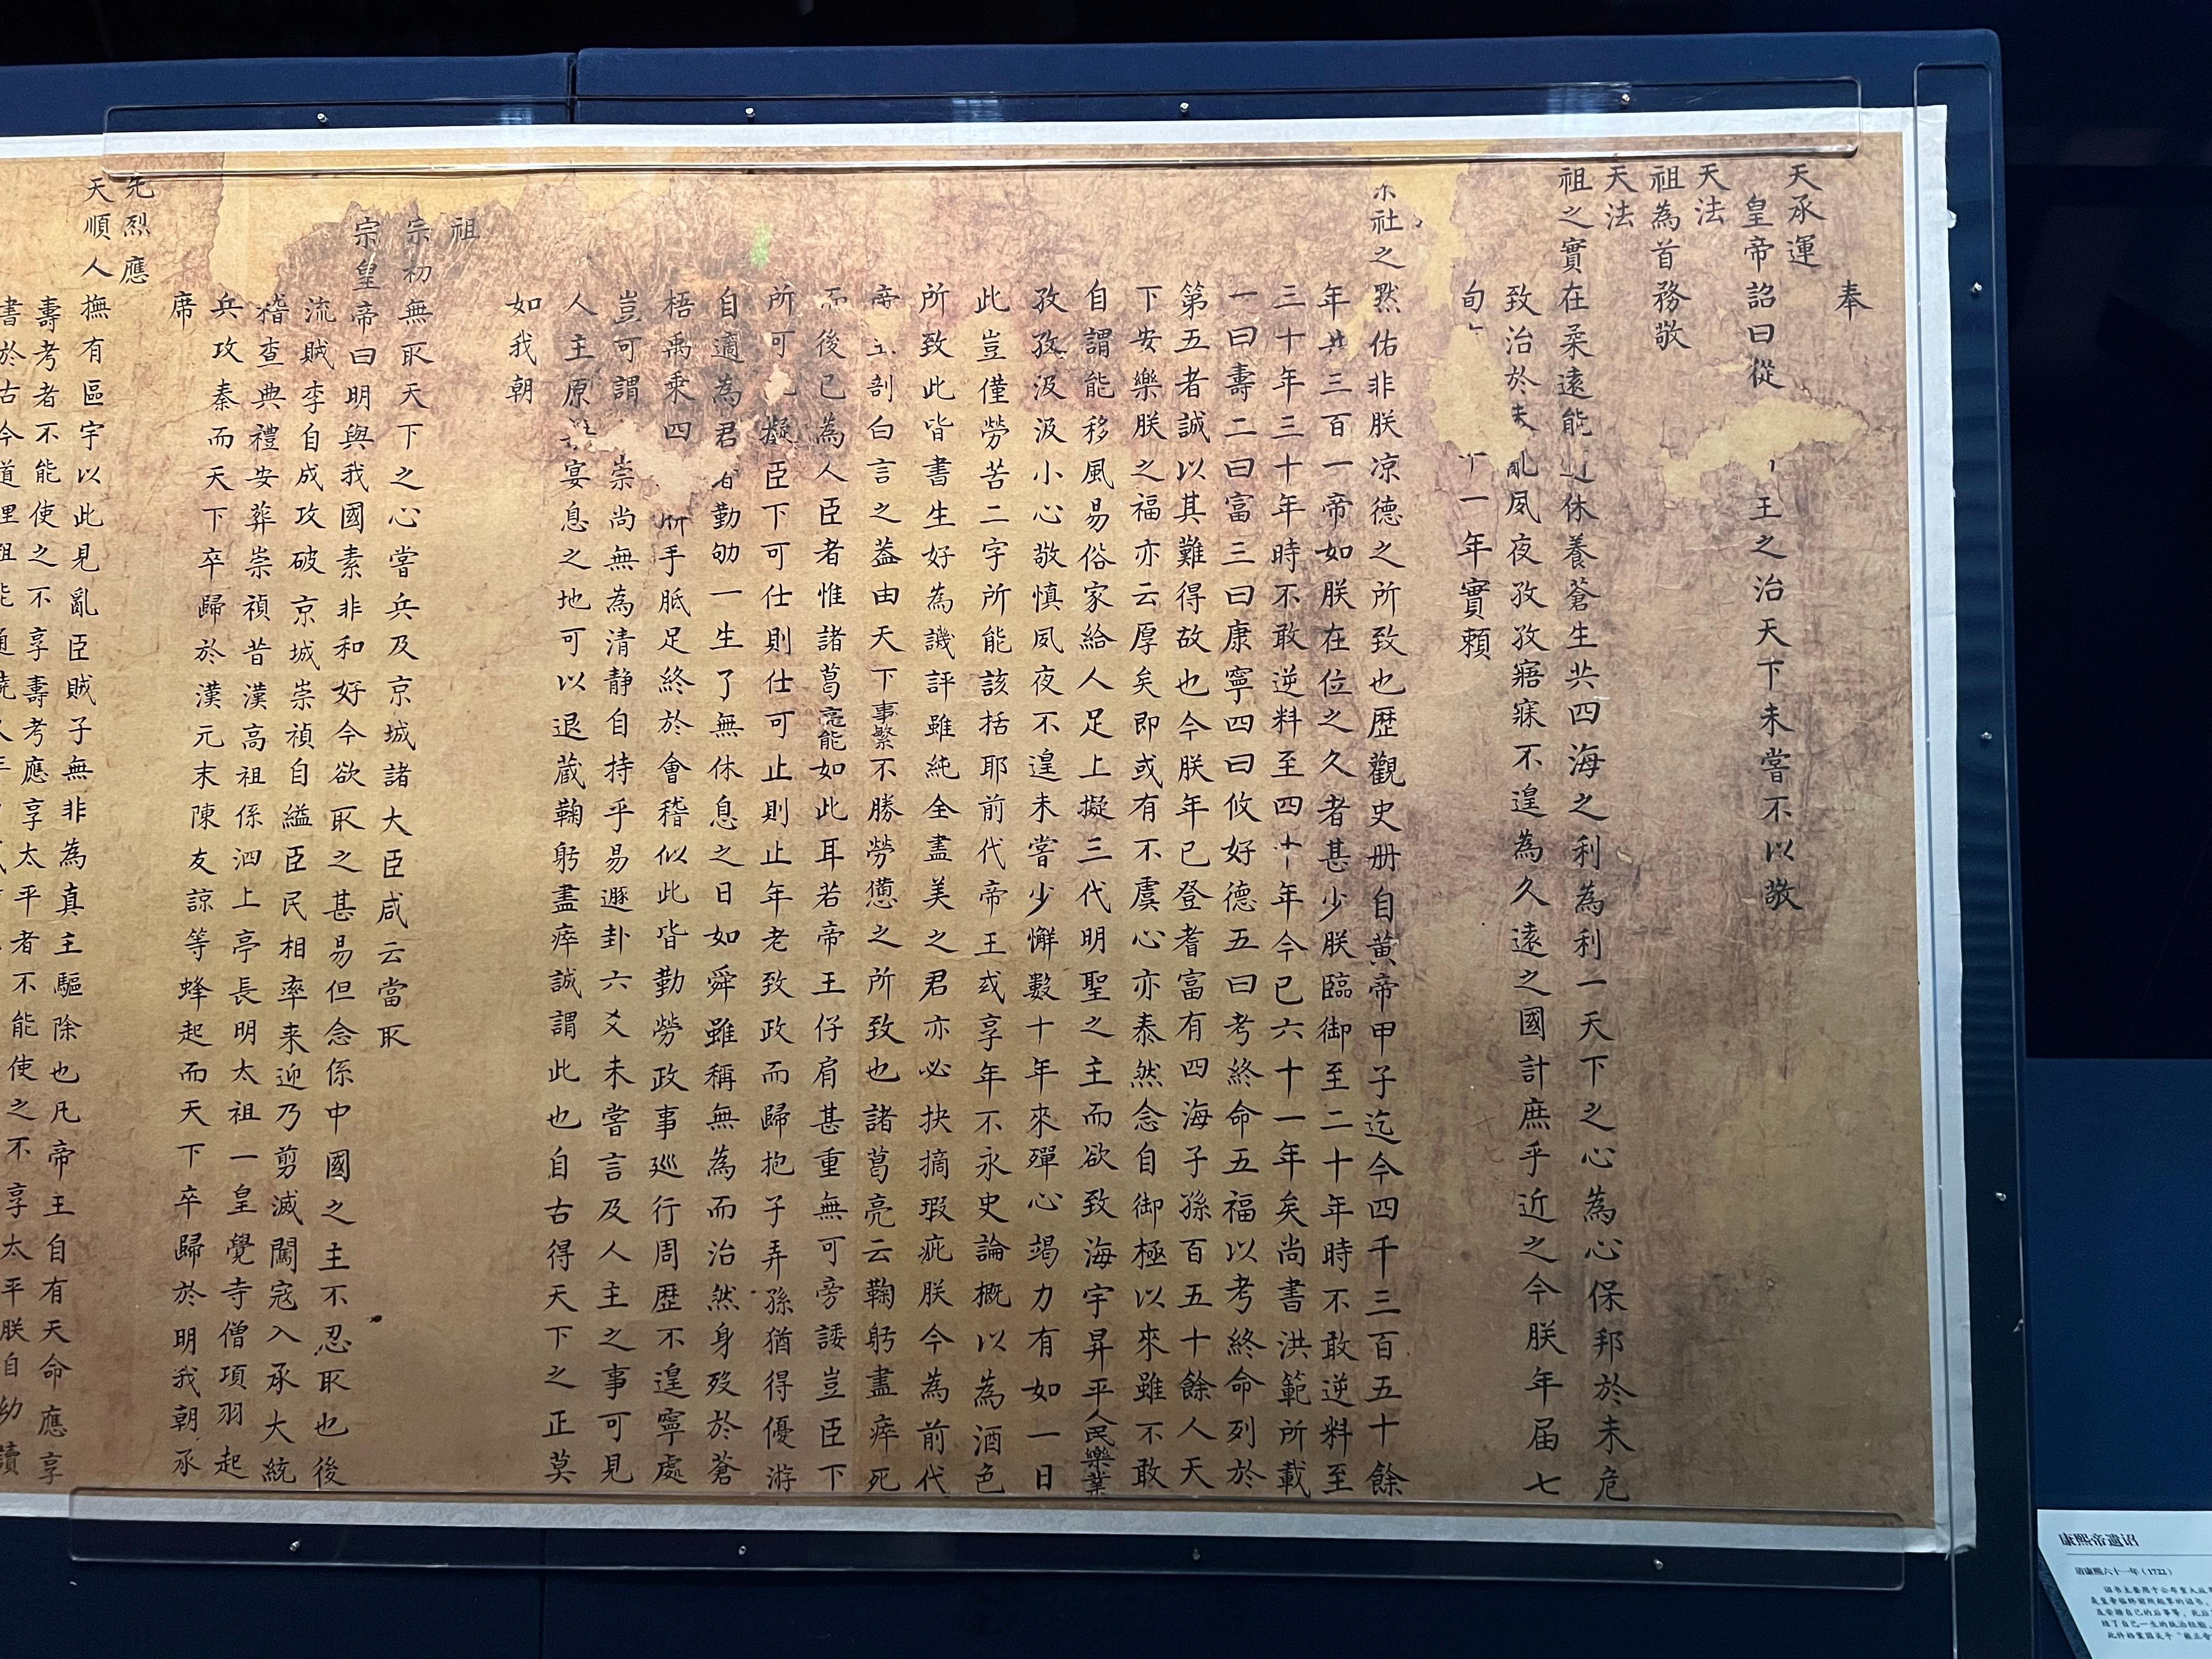 奉
天承運
皇帝詔曰從王之治天下未嘗不以敬
天法
祖為首務敬
天法
祖之實在柔遠能近休養蒼生共四海之利為利一天下之心為心保邦於未危
致治於未亂夙夜孜孜寤寐不遑為久遠之國計庶乎近之今朕年届七
旬十一年實賴
宗社之默佑非朕凉德之所致也歷觀史册自黄帝甲子迄今四千三百五十餘
年共三百一帝如朕在位之久者甚少朕臨御至二十年時不敢逆料至
三十年三十年時不敢逆料至四十年今已六十一年矣尚書洪範所載
一曰壽二曰富三曰康寧四曰攸好德五曰考終命五福以考終命列於
第五者誠以其難得故也今朕年已登耆富有四海子孫百五十餘人天
下安樂朕之福亦云厚矣即或有不虞心亦泰然念自御極以來雖不敢
自謂能移風易俗家給人足上擬三代明聖之主而欲致海宇昇平人民樂業
孜孜汲汲小心敬慎夙夜不遑未嘗少懈數十年來殫心竭力有如一日
此豈僅勞苦二字所能該括耶前代帝王或享年不永史論概以為酒色
所致此皆書生好為譏評雖純全盡美之君亦必抉摘瑕疵朕今為前代
帝王剖白言之葢由天下事繁不勝勞憊之所致也諸葛亮云鞠躬盡瘁死
而後已為人臣者惟諸葛亮能如此耳若帝王仔肩甚重無可旁諉豈臣下
所可比擬臣下可仕則仕可止則止年老致政而歸抱子弄孫猶得優游
自適為君者勤劬一生了無休息之日如舜雖稱無為而治然身歿於蒼
梧禹乘四胼手胝足終於會稽似此皆勤勞政事廵行周歷不遑寧處
豈可謂崇尚無為清静自持乎易遯卦六爻未嘗言及人主之事可見
人主原無宴息之地可以退藏鞠躬盡瘁誠謂此也自古得天下之正莫
如我朝
祖
宗初無取天下之心嘗兵及京城諸大臣咸云當取
宗皇帝曰明與我國素非和好今欲取之甚易但念係中國之主不忍取也後
流賊李自成攻破京城崇禎自縊臣民相率来迎乃剪滅闖寇入承大統
稽查典禮安葬崇禎昔漢高祖係泗上亭長明太祖一皇覺寺僧項羽起
兵攻秦而天下卒歸於漢元末陳友諒等蜂起而天下卒歸於明我朝承
席
先烈應
天順人撫有區宇以此見亂臣賊子無非為真主驅除也凡帝王自有天命應享
壽考者不能使之不享壽考應享太平者不能使之不享太平朕自幼讀
書於古今道理
康熙帝遗诏
清康熙六十一年（1722）